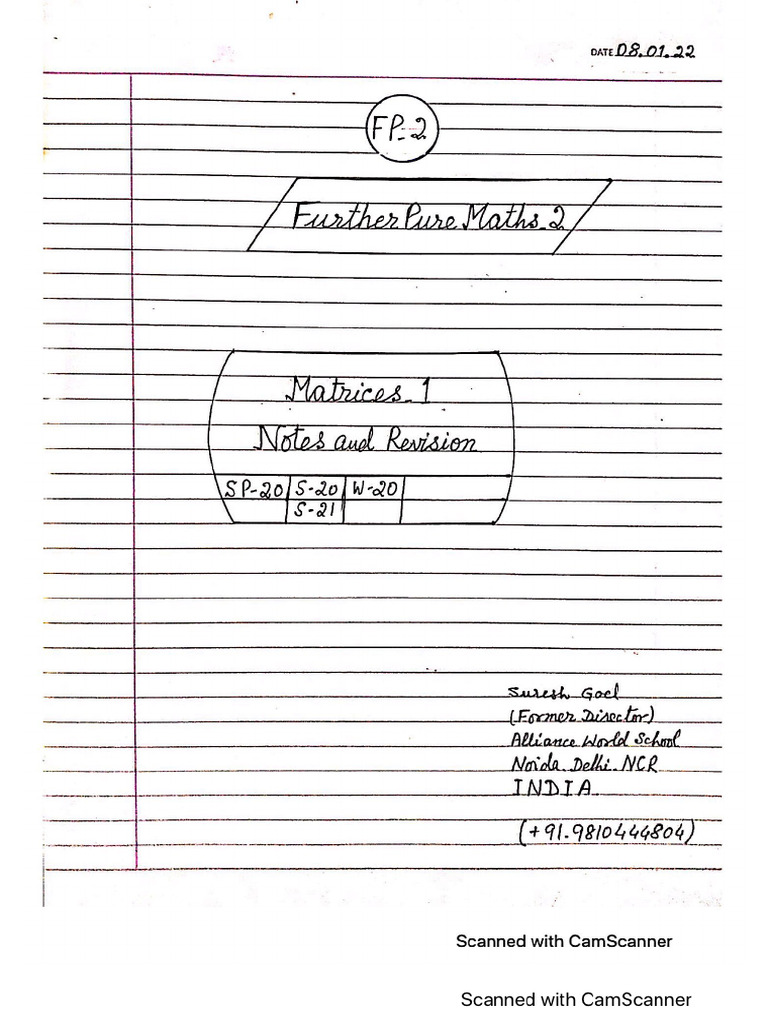 DATE 08.01.22
FP-2
Further Pure Maths-2
Matrices-1
Notes and Revision
SP-20 S-20 W-20
S-21
Suresh Goel
(Former Director)
Alliance World School
Noida Delhi-NCR
INDIA
(+91.9810444804)
Scanned with CamScanner
Scanned with CamScanner